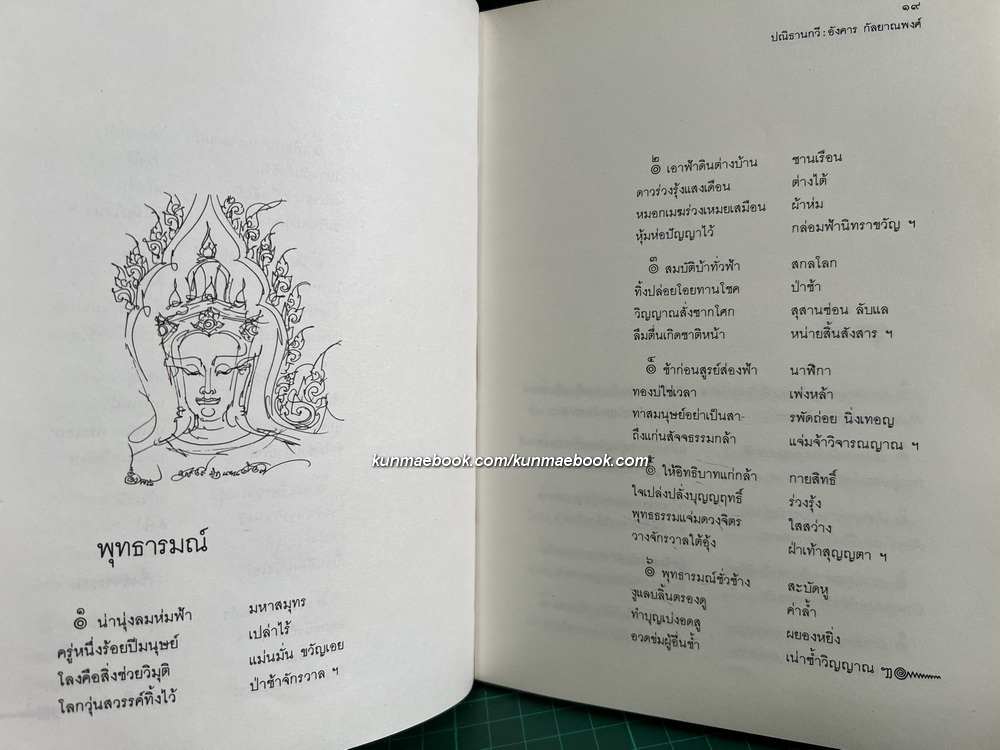 พุทธารมณ์
๑
๏ น่านุ่งลมห่มฟ้า มหาสมุทร
ครู่หนึ่งร้อยปีมนุษย์ เปล่าไร้
โลงคือสิ่งช่วยวิมุติ แม่นมั่น ขวัญเอย
โลกวุ่นสวรรค์ทิ้งไว้ ป่าช้าจักรวาล ฯ
๑๙
ปณิธานกวี : อังคาร กัลยาณพงศ์
๒
๏ เอาฟ้าดินต่างบ้าน ชานเรือน
ดาวร่วงรุ้งแสงเดือน ต่างไต้
หมอกเมฆร่วงเหมยเสมือน ผ้าห่ม
หุ้มห่อปัญญาไว้ กล่อมฟ้านิทราขวัญ ฯ
๓
๏ สมบัติบ้าทั่วฟ้า สกลโลก
ทิ้งปล่อยโอยทานโชค ป่าช้า
วิญญาณสั่งซากโศก สุสานซ่อน ลับแล
ลืมตื่นเกิดชาติหน้า หน่ายสิ้นสังสาร ฯ
๔
๏ ช้าก่อนสูรย์ส่องฟ้า นาฬิกา
ทองบ่ใช่เวลา เพ่งหล้า
ทาสมนุษย์อย่าเป็นสา- รพัดถ่อย นิ่งเทอญ
ถึงแก่นสัจจธรรมกล้า แจ่มจ้าวิจารณญาณ ฯ
kunmaebook.com/kunmaebook.com
๕
๏ ให้อิทธิบาทแก่กล้า กายสิทธิ์
ใจเปล่งปลั่งบุญญฤทธิ์ ร่วงรุ้ง
พุทธธรรมแจ่มดวงจิตร ใสสว่าง
วางจักรวาลใต้อุ้ง ฝ่าเท้าสุญญตา ฯ
๖
๏ พุทธารมณ์ชั่วช้าง สะบัดหู
งูแลบลิ้นตรองดู ค่าล้ำ
ทำบุญเบ่งอดสู ผยองหยิ่ง
อวดข่มผู้อื่นช้ำ เน่าซ้ำวิญญาณ ฯ๛